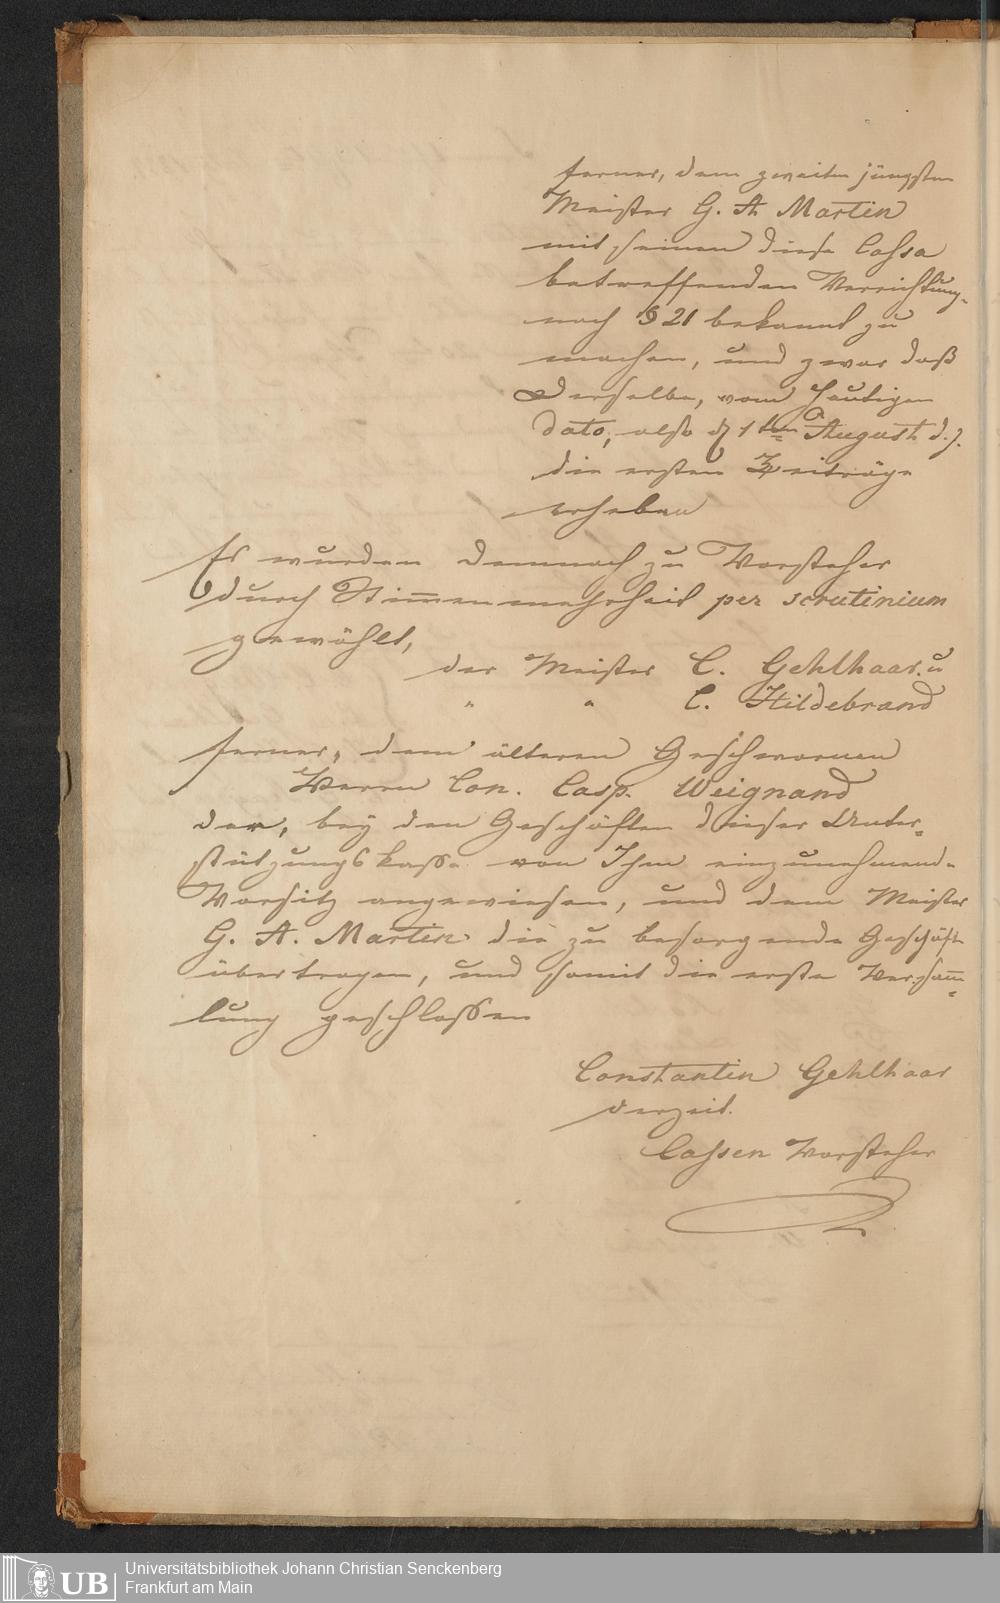 ferner, dem zweiten jüngsten
Meister G. A. Martin
mit seinen diese Cassa
betreffenden Verrichtung-
nach § 21 bekannt zu
machen, und zwar daß
derselbe, vom heutigen
dato, also d 1ten August d. J.
die ersten Beiträge
erheben
Es wurden demnach zu Vorsteher
durch Stimmenmehrheit per scrutinium
gewählt,
der Meister C. Gehlhaar. u
" " C. Hildebrand
ferner, dem älteren Geschwornen
Herrn Con. Casp. Weignand
der, bey den Geschäften dieser Unter-
stützungskasse von Ihm einzunehmend-
Vorsitz angewiesen, und dem Meister
G. A. Martin die zu besorgende Geschäft
übertragen, und somit die erste Versam̄-
lung geschlossen
Constantin Gehlhaar
derzeit.
Cassen Vorsteher
UB
Universitätsbibliothek Johann Christian Senckenberg
Frankfurt am Main